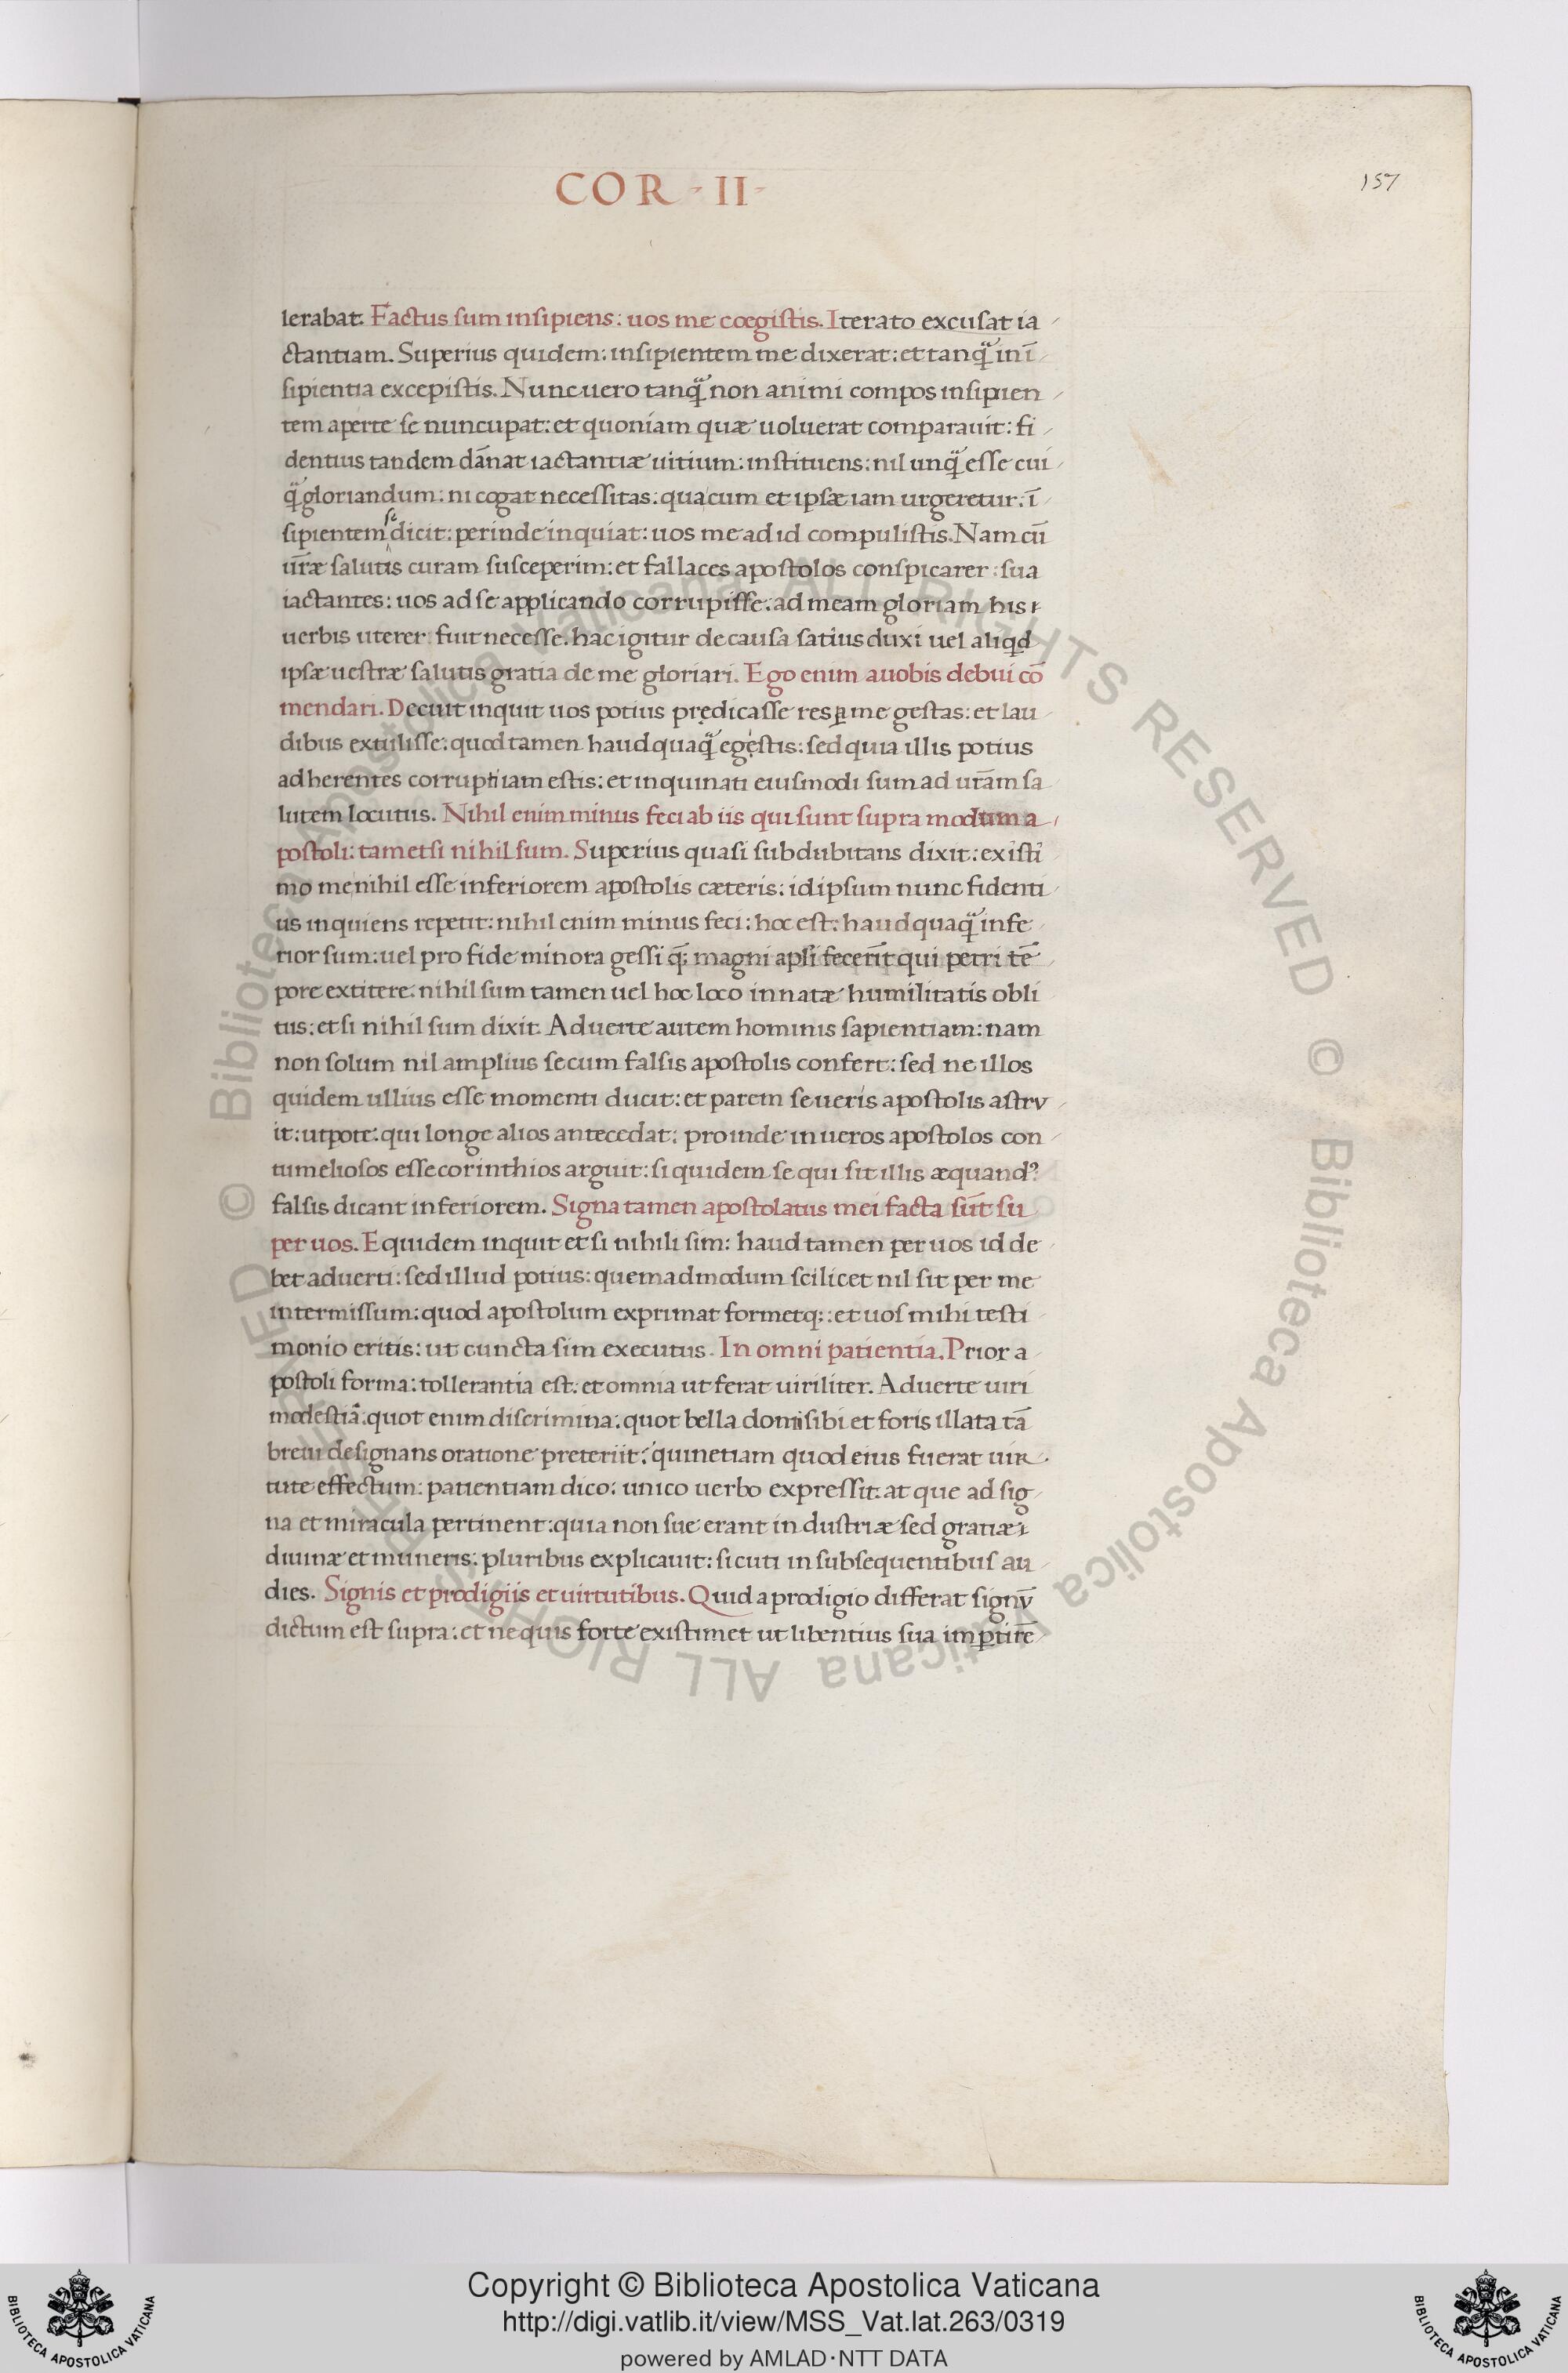 COR - II -
157
lerabat. Factus sum insipiens: uos me coegistis. Iterato excusat ia
ctantiam. Superius quidem: insipientem me dixerat: et tanq̃ in ĩ
sipientia excepistis. Nunc uero tanq̃ non animi compos insipien
tem aperte se nuncupat: et quoniam quæ uoluerat comparauit: fi
dentius tandem dãnat iactantiæ uitium: instituens: nil unq̃ esse cui
q̃ gloriandum: ni cogat necessitas: quacum et ipsæ iam urgeretur: ĩ
sipientem se dicit: perinde inquiat: uos me ad id compulistis. Nam cũ
ur̃æ salutis curam susceperim: et fallaces apostolos conspicarer: sua
iactantes: uos ad se applicando corrupisse: ad meam gloriam his
uerbis uterer fuit necesse. hac igitur de causa satius duxi uel aliqd
ipsæ uestræ salutis gratia de me gloriari. Ego enim auobis debui cõ
mendari. Decuit inquit uos potius prędicasse res ꝑ me gestas: et lau
dibus extulisse: quod tamen haudquaq̃ egẹstis: sed quia illis potius
adherentes corrupti iam estis: et inquinati eiusmodi sum ad ur̃am sa
lutem locutus. Nihil enim minus feci ab iis qui sunt supra modum a
postoli: tametsi nihil sum. Superius quasi subdubitans dixit: existi
mo me nihil esse inferiorem apostolis cæteris: id ipsum nunc fidenti
us inquiens repetit: nihil enim minus feci: hoc est: haudquaq̃ infe
rior sum: uel pro fide minora gessi q̃; magni apl̃i fecerĩt qui petri tẽ
pore extitere. nihil sum tamen uel hoc loco innatæ humilitatis obli
tus: et si nihil sum dixit. Aduerte autem hominis sapientiam: nam
non solum nil amplius secum falsis apostolis confert: sed ne illos
quidem ullius esse momenti ducit: et parem se ueris apostolis astrv
it: utpote: qui longe alios antecedat: proinde in ueros apostolos con
tumeliosos esse corinthios arguit: siquidem se qui sit illis æquandꝰ
falsis dicant inferiorem. Signa tamen apostolatus mei facta sũt su
per uos. Equidem inquit et si nihili sim: haud tamen per uos id de
bet aduerti: sed illud potius: quemadmodum scilicet nil sit per me
intermissum: quod apostolum exprimat formetq;: et uos mihi testi
monio eritis: ut cuncta sim executus. In omni patientia. Prior a
postoli forma: tollerantia est: et omnia ut ferat uiriliter. Aduerte uiri
modestiã: quot enim discrimina: quot bella domi sibi et foris illata tã
breui designans oratione preteriit: quinetiam quod eius fuerat uir
tute effectum: patientiam dico: unico uerbo expressit. at que ad sig
na et miracula pertinent: quia non sue erant industriæ sed gratiæ
diuinæ et muneris: pluribus explicauit: sicuti in subsequentibus au
dies. Signis et prodigiis et uirtutibus. Quid a prodigio differat signv̄
dictum est supra: et nequis forte existimet ut libentius sua imꝑtirẽ
© Biblioteca Apostolica Vaticana ALL RIGHTS RESERVED © Biblioteca Apostolica Vaticana ALL RIGHTS RESERVED
Copyright © Biblioteca Apostolica Vaticana
http://digi.vatlib.it/view/MSS_Vat.lat.263/0319
powered by AMLAD·NTT DATA
BIBLIOTECA APOSTOLICA VATICANA
BIBLIOTECA APOSTOLICA VATICANA